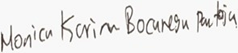 Monica Karina Bocanegra Pantoja